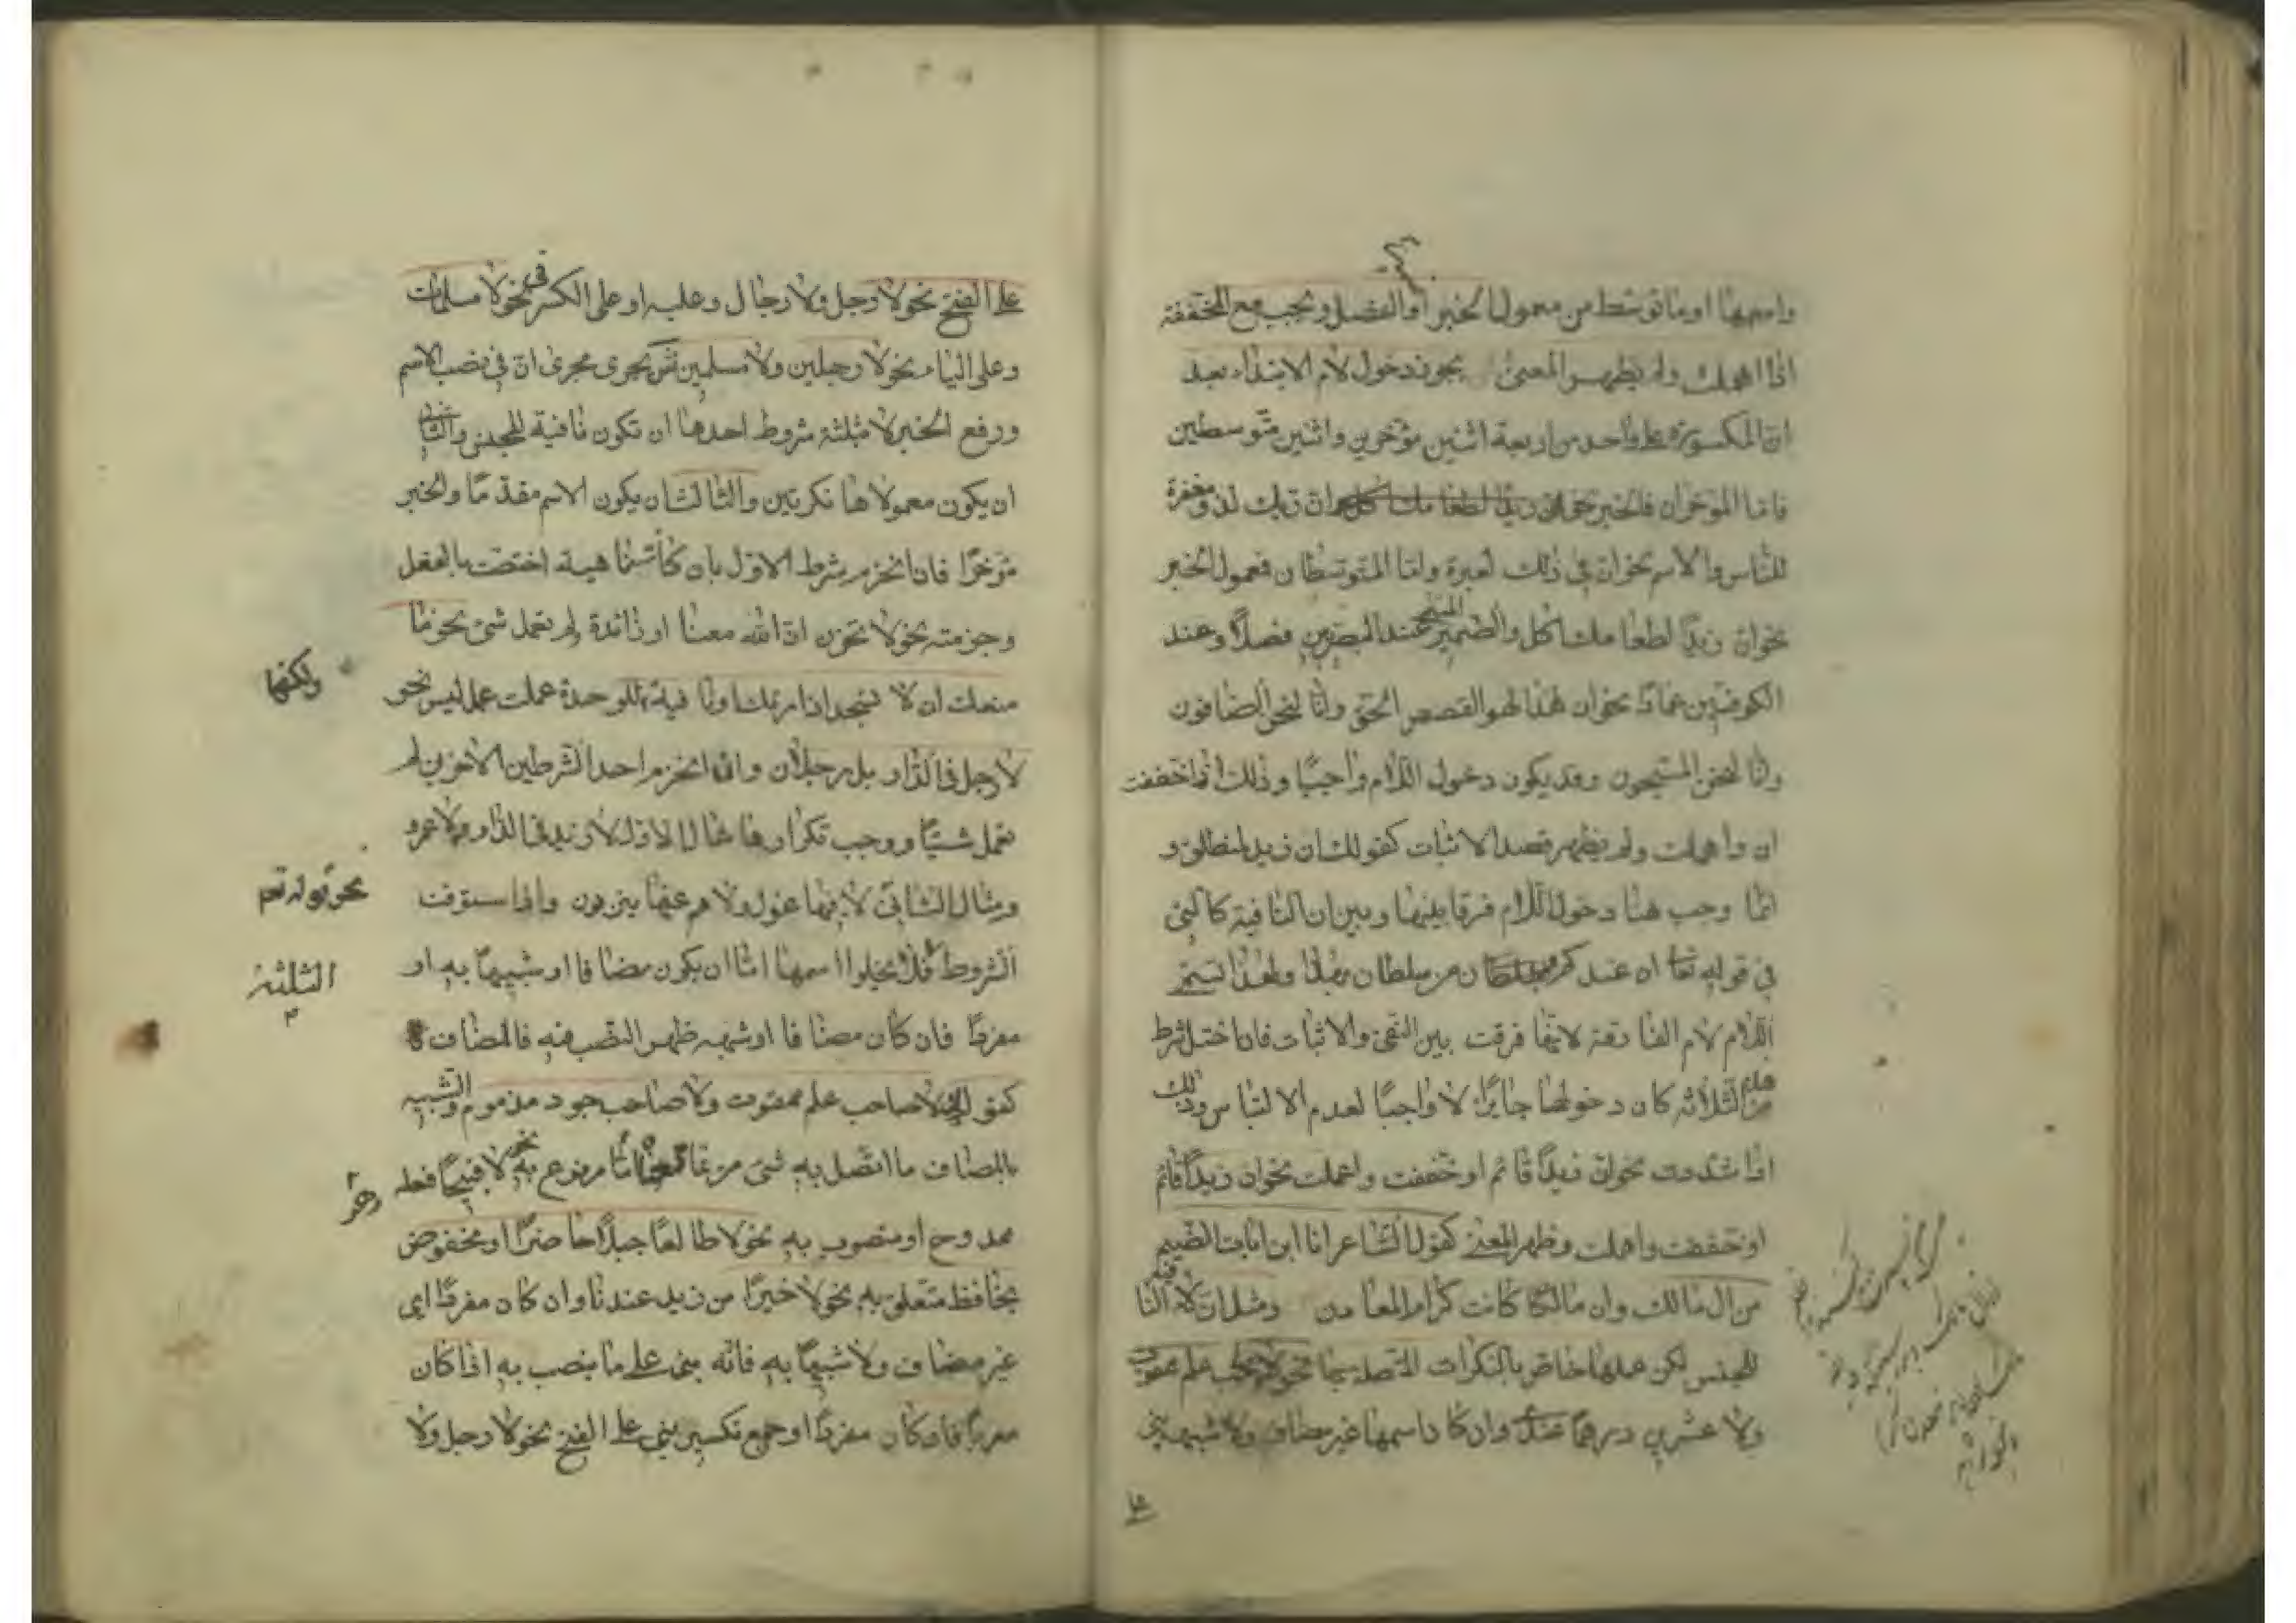 واسمها او ما توسط من معمول الخبر او الفصل ويجب مع المخففة
اذا اهملت ولم يظهر المعنى يجوز دخول لام الابتداء بعد
ان المكسورة على واحد من اربعة اثنين مؤخرين واثنين متوسطين
فاما المؤخران فالخبر نحو ان ربك لذو مغفرة
للناس والاسم نحو ان في ذلك لعبرة واما المتوسطان فمعمول الخبر
نحو ان زيدا لطعامك اكل والضمير المسمى عند البصريين فصلا وعند
الكوفيين عمادا نحو ان هذا لهو القصص الحق وانا لنحن الصافون
وانا لنحن المسبحون وقد يكون دخول اللام واجبا وذلك اذا خففت
ان واهملت ولم يظهر قصد الاثبات كقولك ان زيد لمنطلق و
انما وجب هنا دخول اللام فرقا بينها وبين ان النافية كالتي
في قوله تعا ان عندكم من سلطان بهذا ولهذا تسمى
اللام لام الفارقة لانها فرقت بين النفي والاثبات فان اختل شرط
من الثلاثه كان دخولها جايزا لا واجبا لعدم الالتباس وذلك
اذا شددت نحو ان زيدا قائم او خففت واعملت نحو ان زيدا قائم
او خففت واهملت وظهر المعنى كقول الشاعر انا ابن اباة الضيم
من ال مالك وان مالك كانت كرام المعادن ومثل ان لا النافية
للجنس لكن عملها خاص بالنكرات المتصلة بها نحو لا صاحب علم ممقوت
ولا عشرين درهما عندك وان كان اسمها غير مضاف ولا شبهه بني
على
على الفتح نحو لا رجل ولا رجال وعليه او على الكسر في نحو لا مسلمات
وعلى الياء نحو لا رجلين ولا مسلمين ش يجرى مجرى ان في نصب الاسم
ورفع الخبر لا بثلثة شروط احدها ان تكون نافية للجنس والثاني
ان يكون معمولاها نكرتين والثالث ان يكون الاسم مقدما والخبر
مؤخرا فان انخرم شرط الاول بان كانت ناهية اختصت بالفعل
وجزمته نحو لا تحزن ان الله معنا او زائدة لم تعمل شئ نحو ما
منعك ان لا تسجد اذ امرتك او نافية للوحدة عملت عمل ليس نحو
ولكنها
لا رجل في الدار بل رجلان وان انخرم احد الشرطين الاخرين لم
تعمل شيئا ووجب تكرارها مثال الاول لا زيد في الدار ولا عمرو
ومثال الثاني لا فيها غول ولا هم عنها ينزفون واذا استوفت
نحو قوله تعم
الشروط فلا يخلوا اسمها اما ان يكون مضافا او شبيها به او
الثلثة
مفردا فان كان مضافا او شبهه ظهر النصب فيه فالمضاف
كقولك لا صاحب علم ممقوت ولا صاحب جود مذموم والشبيه
بالمضاف ما اتصل به شئ من تمام معناه اما مرفوع به نحو لا قبيحا فعله
ممدوح او منصوب به نحو لا طالعا جبلا حاضرا او مخفوض
بخافظ متعلق به نحو لا خيرا من زيد عندنا وان كان مفردا اى
غير مضاف ولا شبيها به فانه يبنى على ما ينصب به اذا كان
معربا فان كان مفردا او جمع تكسير بني على الفتح نحو لا رجل ولا